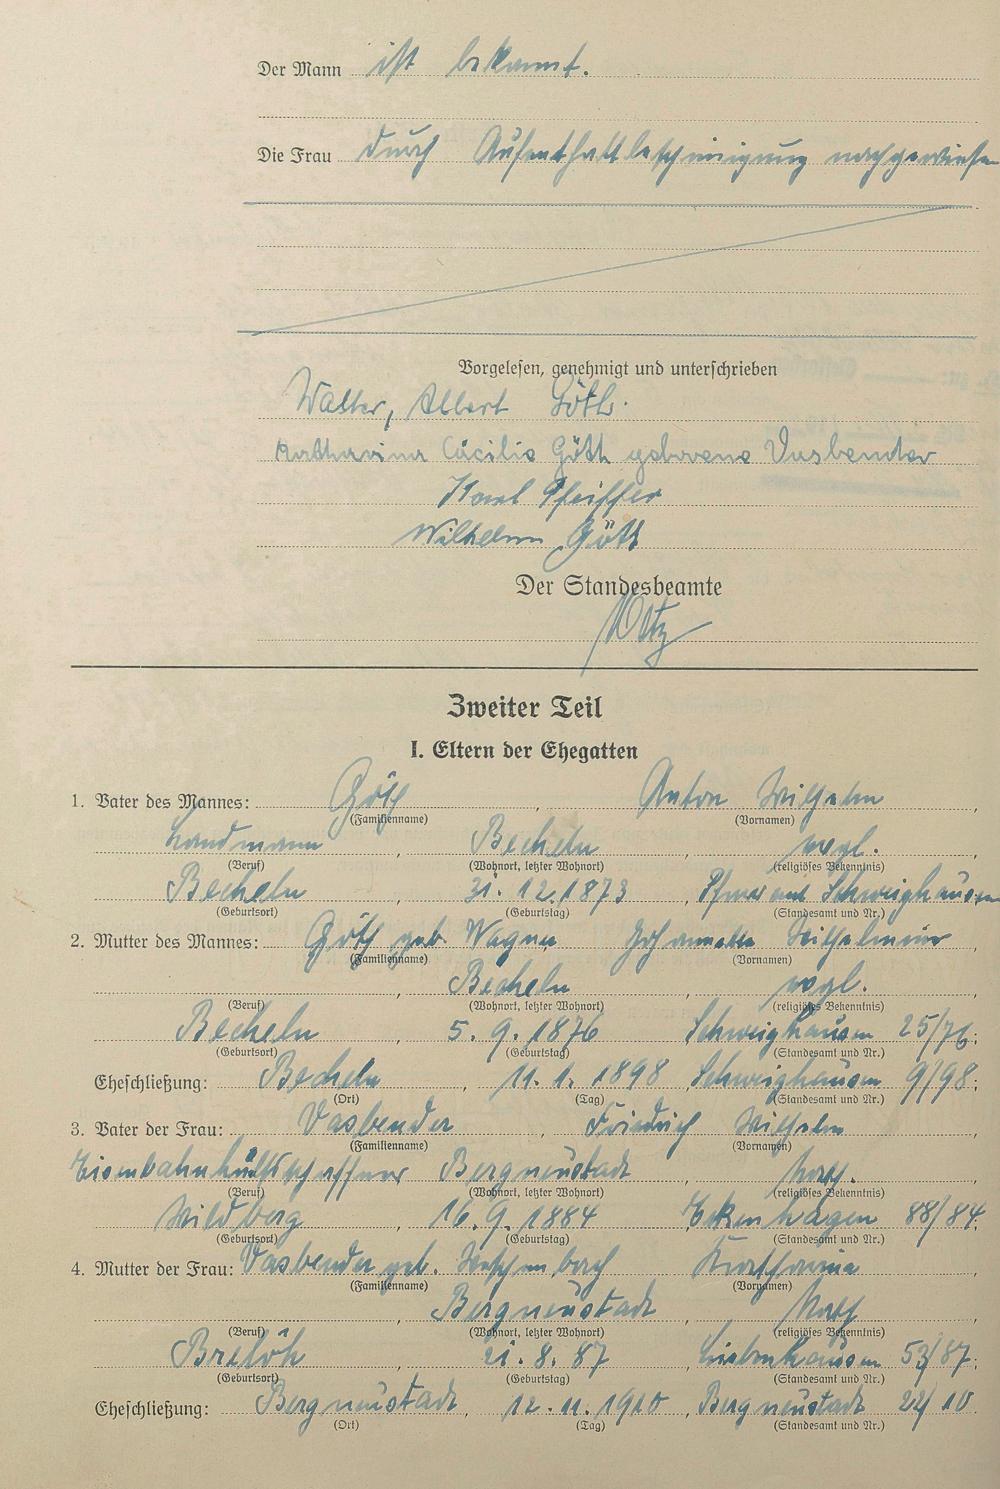 Der Mann ist bekannt.
Die Frau durch Aufenthaltbescheinigung nachgewiesen
Vorgelesen, genehmigt und unterschrieben
Walter, Albert Göth.
Katharina Cäcilie Göth geborene Vasbender
Karl Pfeiffer
Wilhelm Göth
Der Standesbeamte
Zweiter Teil
I. Eltern der Ehegatten
1. Vater des Mannes: Göth, Anton Wilhelm,
(Familienname) (Vornamen)
Landmann, Becheln, evgl.,
(Beruf) (Wohnort, letzter Wohnort) (religiöses Bekenntnis)
Becheln, 31.12.1873, Pfarramt Schweighausen
(Geburtsort) (Geburtstag) (Standesamt und Nr.)
2. Mutter des Mannes: Göth geb. Wagner Johannette Wilhelmine,
(Familienname) (Vornamen)
, Becheln, evgl.,
(Beruf) (Wohnort, letzter Wohnort) (religiöses Bekenntnis)
Becheln, 5.9.1876 Schweighausen 25/76;
(Geburtsort) (Geburtstag) (Standesamt und Nr.)
Eheschließung: Becheln, 11.1.1898, Schweighausen 9/98;
(Ort) (Tag) (Standesamt und Nr.)
3. Vater der Frau: Vasbender, Friedrich Wilhelm,
(Familienname) (Vornamen)
Eisenbahnhülfsschaffner Bergneustadt, kath.,
(Beruf) (Wohnort, letzter Wohnort) (religiöses Bekenntnis)
Wildberg, 16.9.1884, Eckenhagen 88/84,
(Geburtsort) (Geburtstag) (Standesamt und Nr.)
4. Mutter der Frau: Vasbender geb. Katharina,
(Familienname) (Vornamen)
, Bergneustadt, kath,
(Beruf) (Wohnort, letzter Wohnort) (religiöses Bekenntnis)
Brelöh, 21.8.87, 53/87;
(Geburtsort) (Geburtstag) (Standesamt und Nr.)
Eheschließung: Bergneustadt, 12.11.1910, Bergneustadt 22/10
(Ort) (Tag) (Standesamt und Nr.)